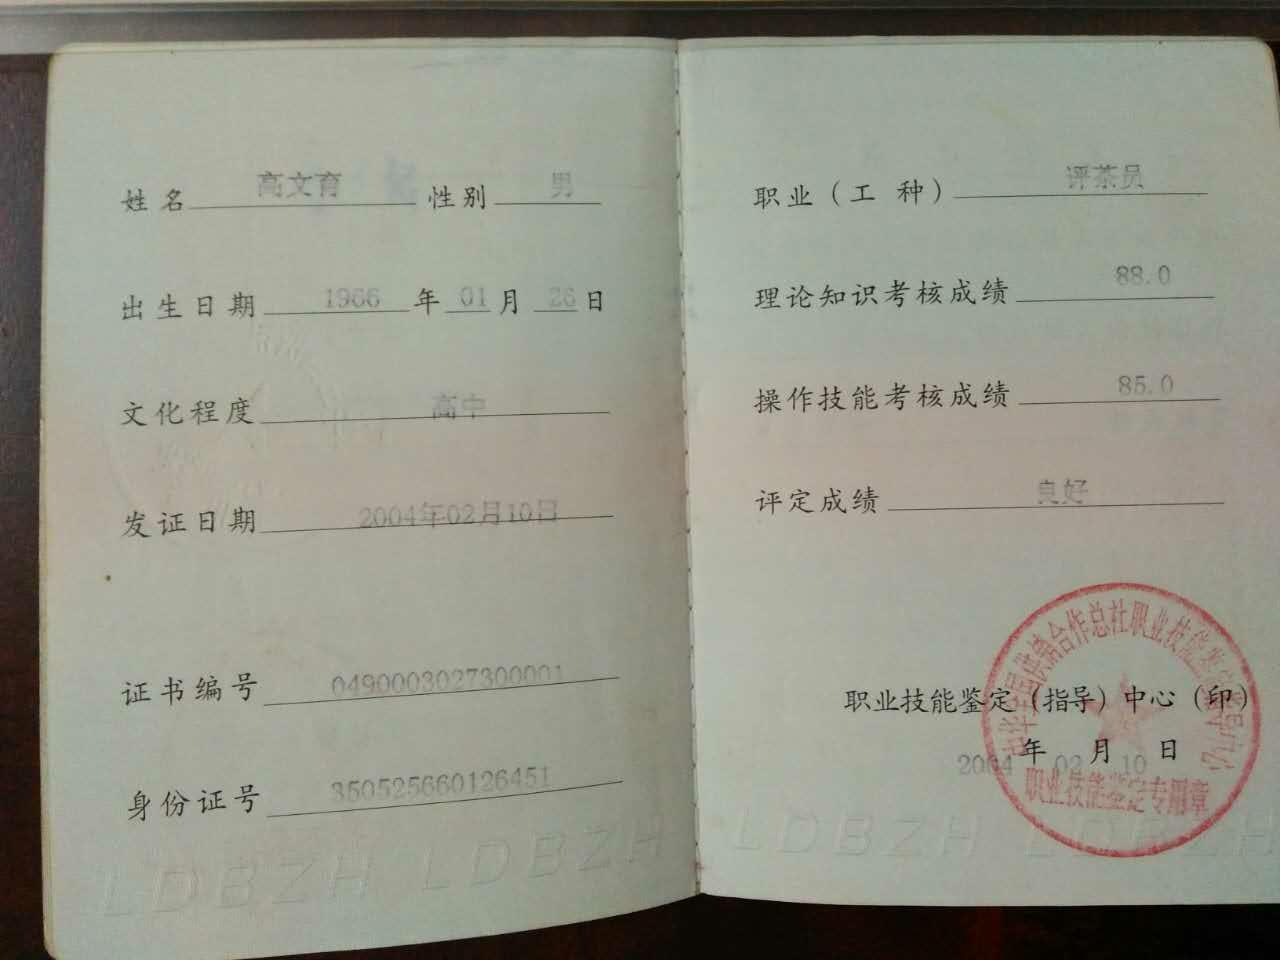 姓名 高文育 性别 男
出生日期 1966 年 01 月 26 日
文化程度 高中
发证日期 2004年02月10日
证书编号 0490003027300001
身份证号 350525660126451
LDBZH LDBZH
职业（工 种） 评茶员
理论知识考核成绩 88.0
操作技能考核成绩 85.0
评定成绩 良好
中华全国供销合作总社职业技能鉴定指导中心
职业技能鉴定（指导）中心（印）
2004 年 02 月 10 日
职业技能鉴定专用章
LDBZH LDBZH